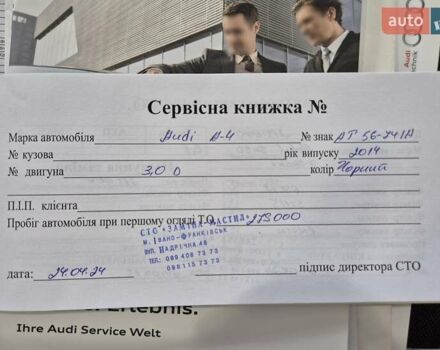 auto
Audi
Сервісна книжка №
Марка автомобіля Audi A-4 № знак AT 56-74 IA
№ кузова рік випуску 2014
№ двигуна 3,0 D колір Чорний
П.І.П. клієнта
Пробіг автомобіля при першому огляді Т.О. 273000
СТО "ЗАМІНА МАСТИЛ"
м. Івано-Франківськ
вул. Надрічна,
тел.: 099 408 73 73
098 115 73 73
дата: 24.04.24 підпис директора СТО
Erlebnis.
Ihre Audi Service Welt